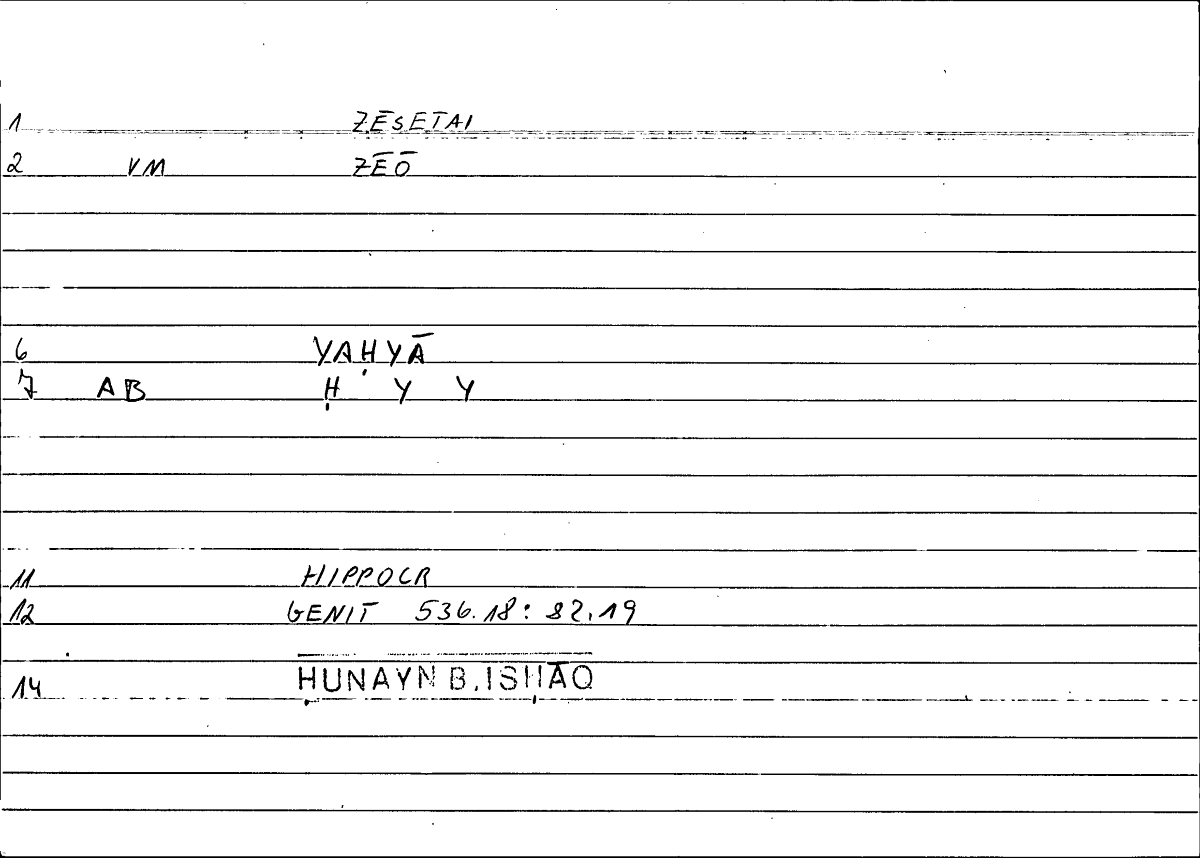 1 ZĒSETAI
2 VM ZĒŌ
6 YAḤYĀ
7 AB Ḥ Y Y
11 HIPPOCR
12 GENIT 536.18: 82.19
14 ḤUNAYN B. ISḤĀQ